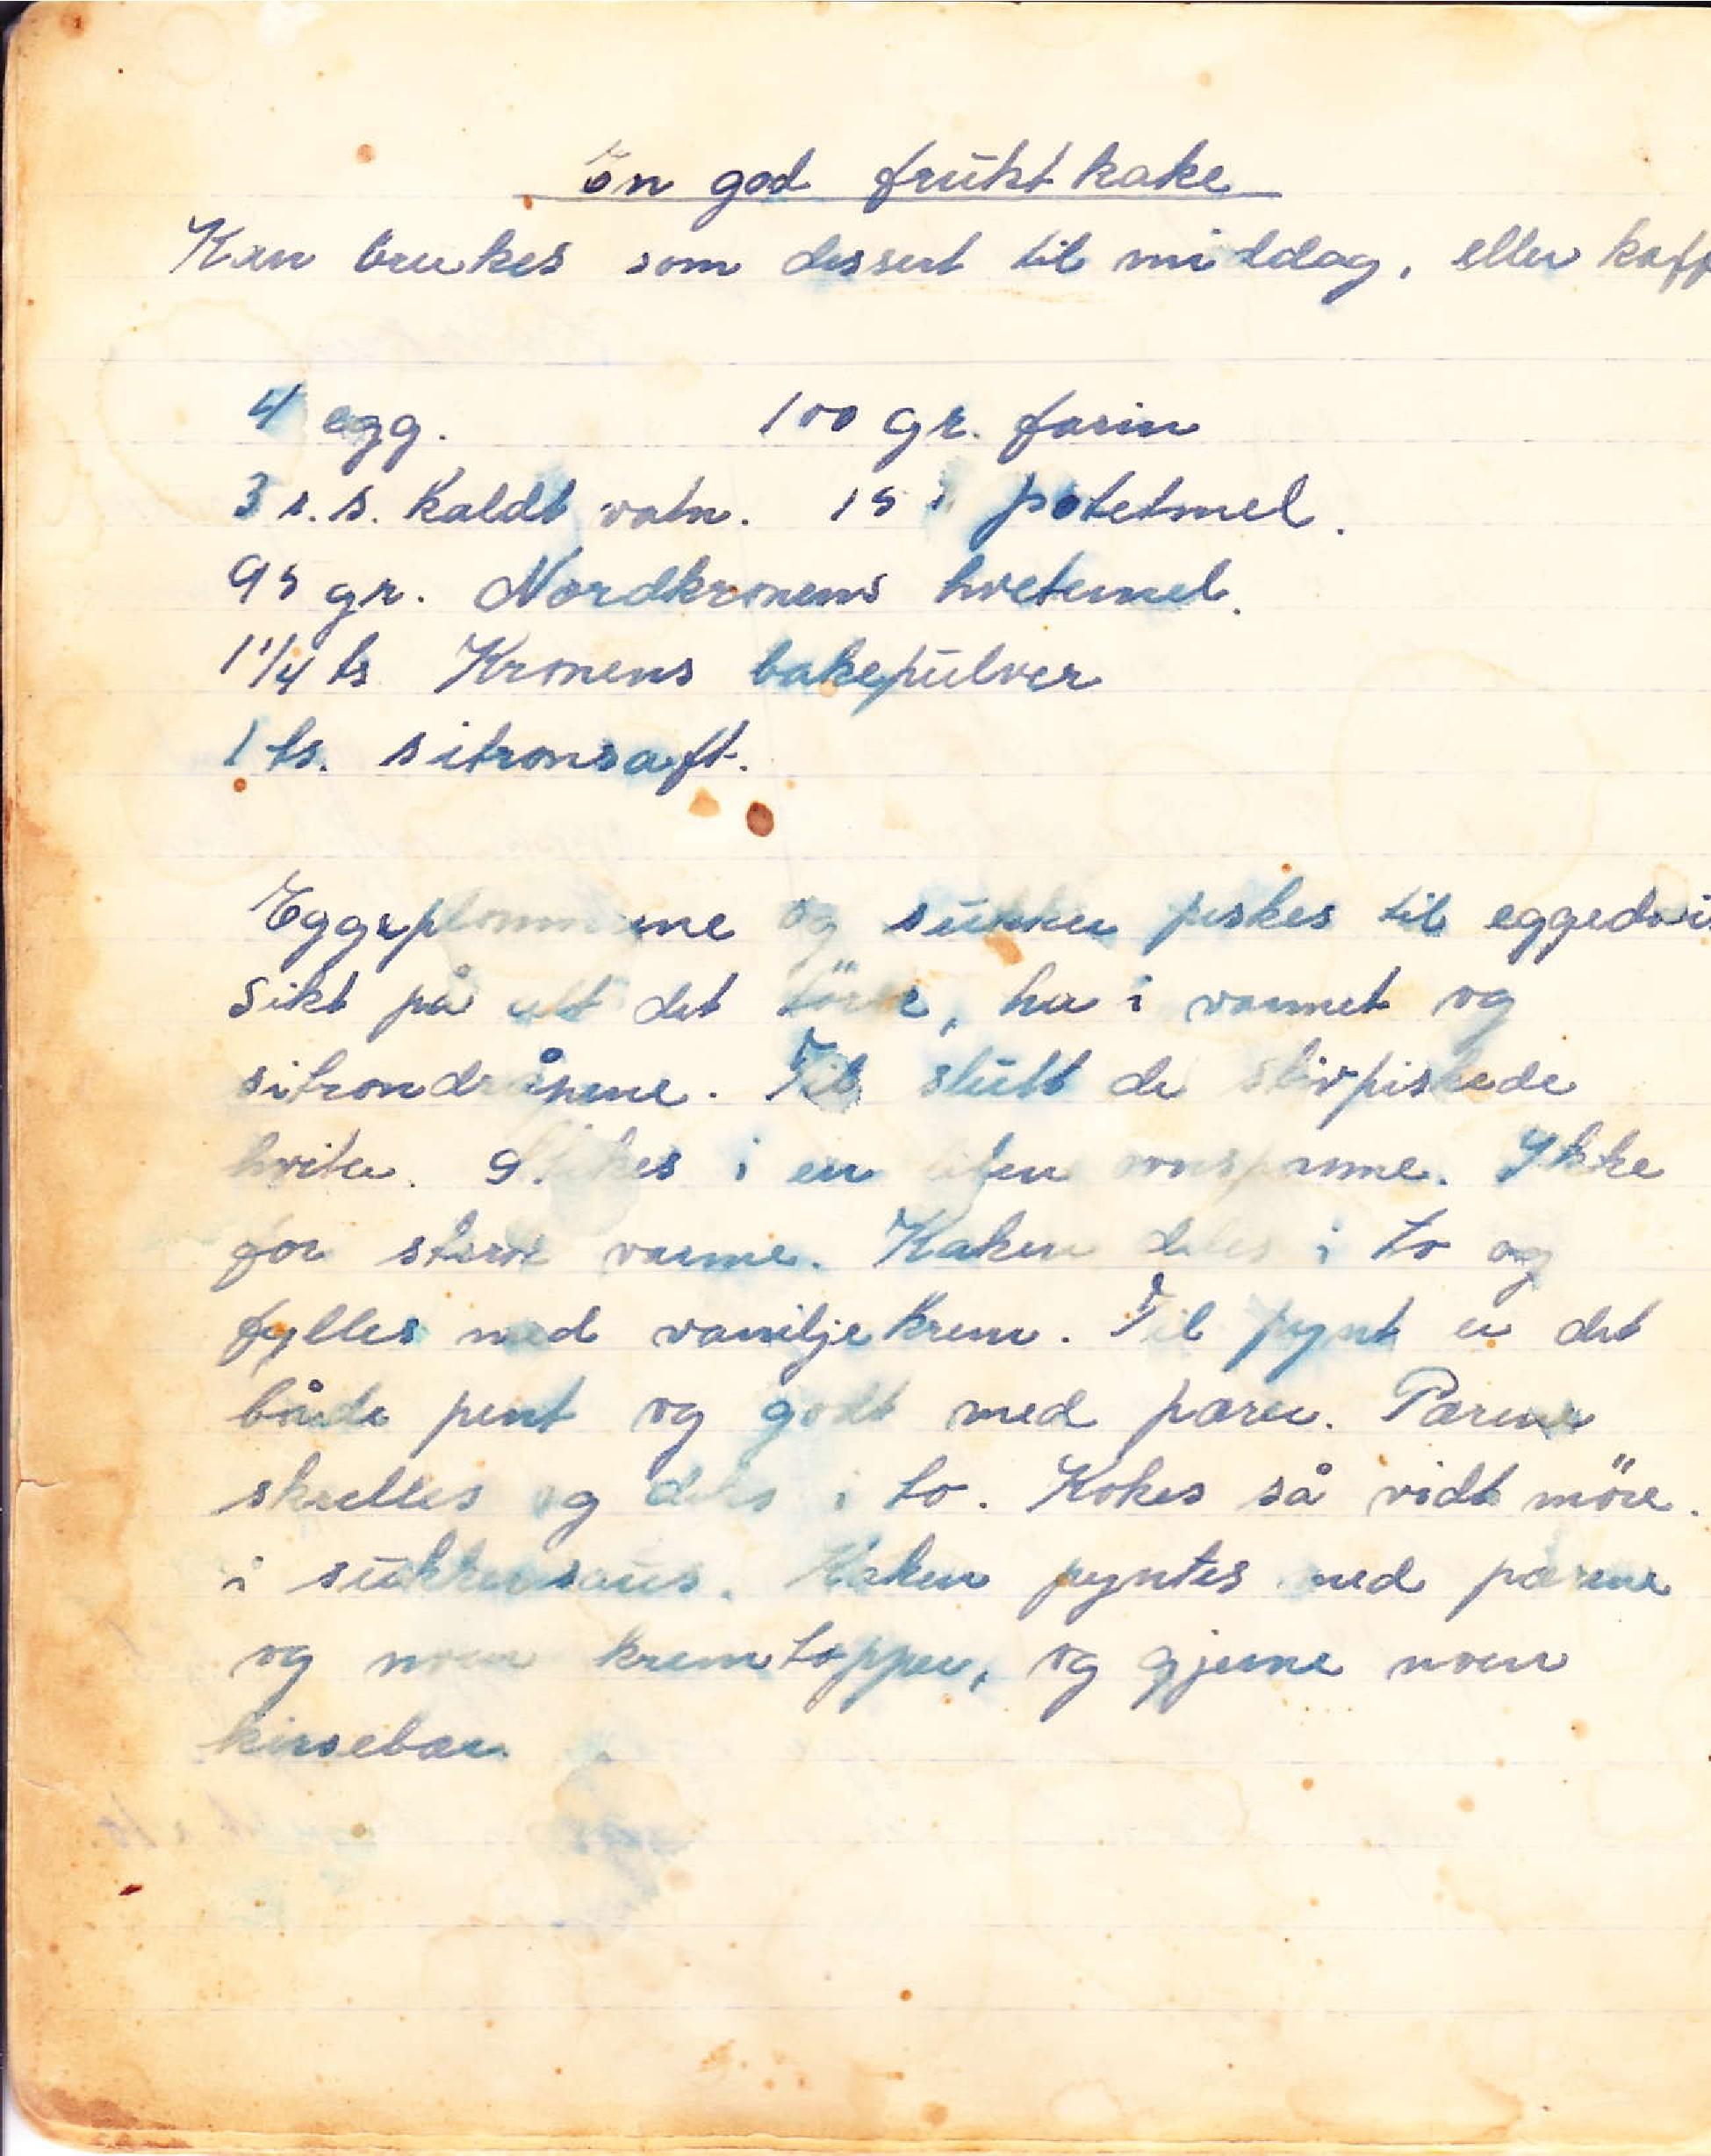 En god fruktkake
Kan brukes som dessert til middag, eller kaff
4 egg. 100 gr. farin
3 s.s. kaldt vatn. 15 " potetmel.
95 gr. Nordkronens hvetemel.
1 1/4 ts Kronens bakepulver
1 ts. sitronsaft.
Eggeplommene og sukker piskes til eggedosi
Sikt på alt det törre, ha i vannet og
sitrondråpene. Til slutt de stivpiskede
hviter. Stekes i en liten ovnspanne. Ikke
for sterk varme. Kaken deles i to og
fylles med vaniljekrem. Til pynt er det
både pent og godt med pærer. Pærene
skrelles og deles i to. Kokes så vidt möre.
i sukkersaus. Kaken pyntes med pærene
og noen kremtopper, og gjerne noen
kirsebær.